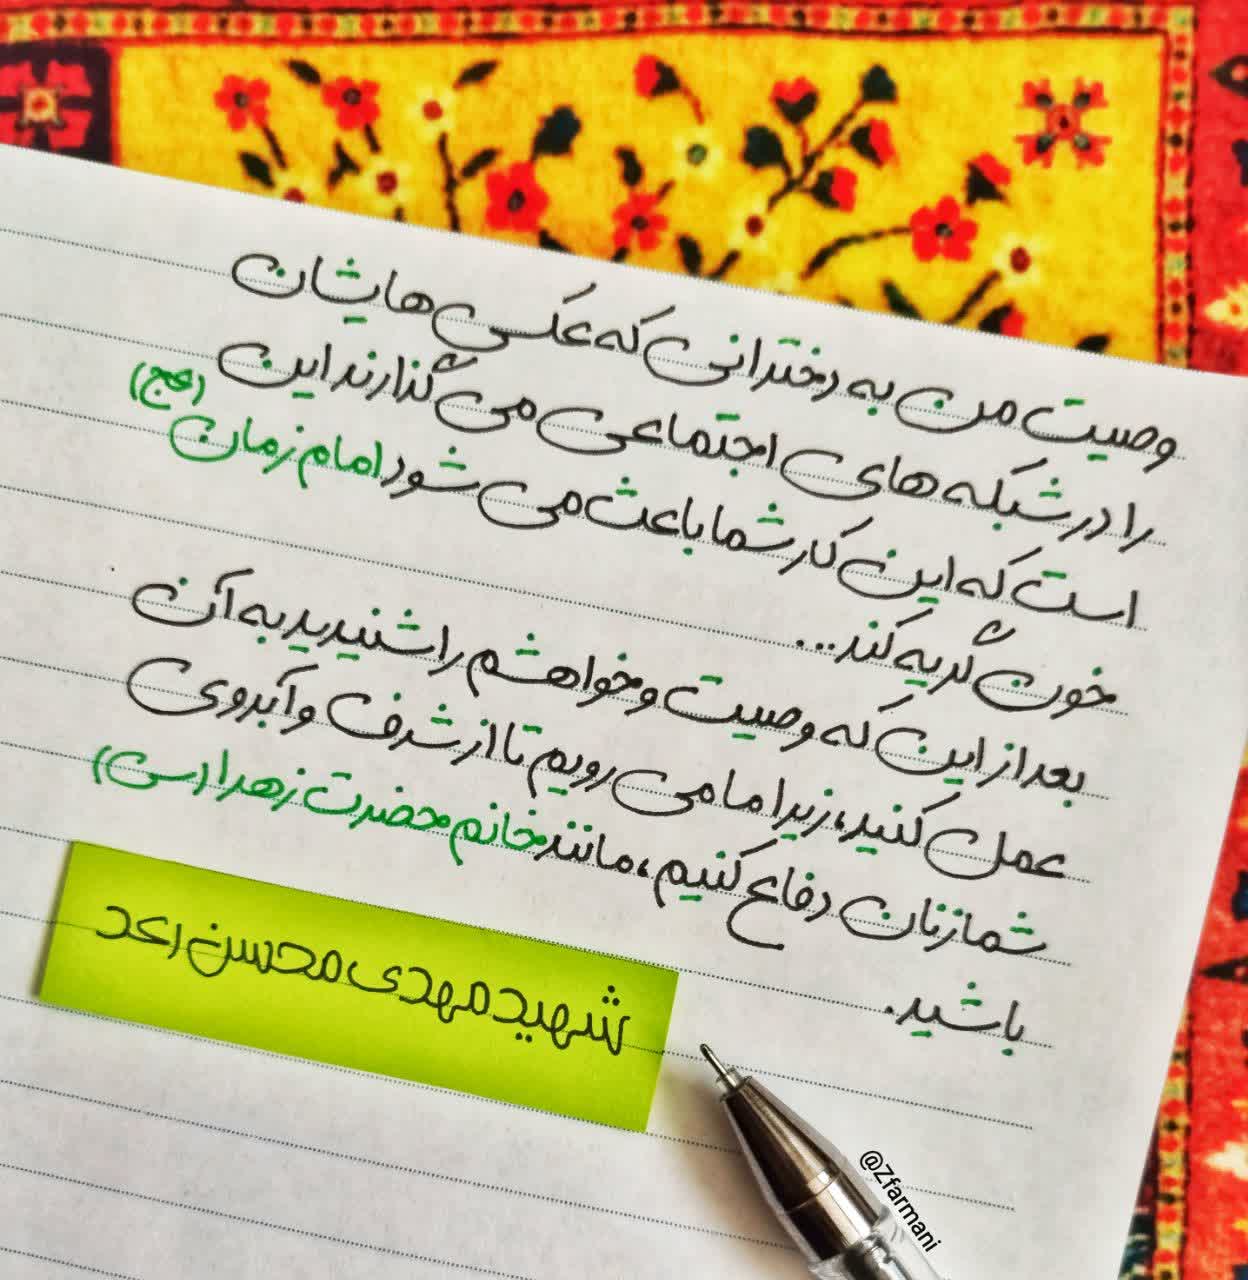 وصیت من به دخترانی که عکس هایشان
را در شبکه های اجتماعی می گذارند این
است که این کار شما باعث می شود امام زمان (عج)
خون گریه کند...
بعد از این که وصیت و خواهشم را شنیدید به آن
عمل کنید، زیرا ما می رویم تا از شرف و آبروی
شما زنان دفاع کنیم، مانند خانم حضرت زهرا (س)
باشید.
شهید مهدی محسن رعد
@Zfarmani